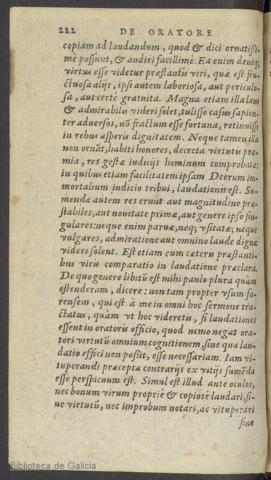 222 DE ORATORE
copiam ad laudandum, quod & dici ornatissi-
mè possunt, & audiri facillimè. Ea enim deniq;
virtus esse videtur præstantis viri, quæ est fru-
ctuosa alijs, ipsi autem laboriosa, aut periculo-
sa, aut certè gratuita. Magna etiam illa laus
& admirabilis videri solet, tulisse casus sapien-
ter aduersos, nõ fractum esse fortuna, retinuisse
in rebus asperis dignitatem. Neque tamen illa
non ornãt, habiti honores, decreta virtutis præ-
mia, res gestæ iudicijs hominum comprobatæ:
in quibus etiam facilitatem ipsam Deorum im-
mortalium iudicio tribui, laudationis est. Su-
mendæ autem res erunt aut magnitudine præ-
stabiles, aut nouitate primæ, aut genere ipso sin-
gulares: neque enim paruæ, neq; vsitatæ, neque
vulgares, admiratione aut omnino laude dignæ
videri solent. Est etiam cum cæteris præstanti-
bus viris comparatio in laudatione præclara.
De quo genere libitũ est mihi paulo plura quàm
ostenderam, dicere: non tam propter vsum fo-
rensem, qui est à me in omni hoc sermone tra-
ctatus, quàm vt hoc videretis, si laudationes
essent in oratoris officio, quod nemo negat ora-
tori virtutũ omnium cognitionem, sine qua lau-
datio effici non possit, esse necessariam. Iam vi-
tuperandi præcepta contrarijs ex vitijs sumẽda
esse perspicuum est. Simul est illud ante oculos,
nec bonum virum propriè & copiosè laudari, si-
ne virtutũ, nec improbum notari, ac vituperari
sine
Biblioteca de Galicia